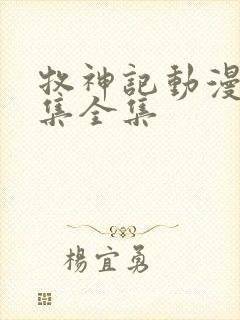 牧神記動漫
集全集
楊宜勇